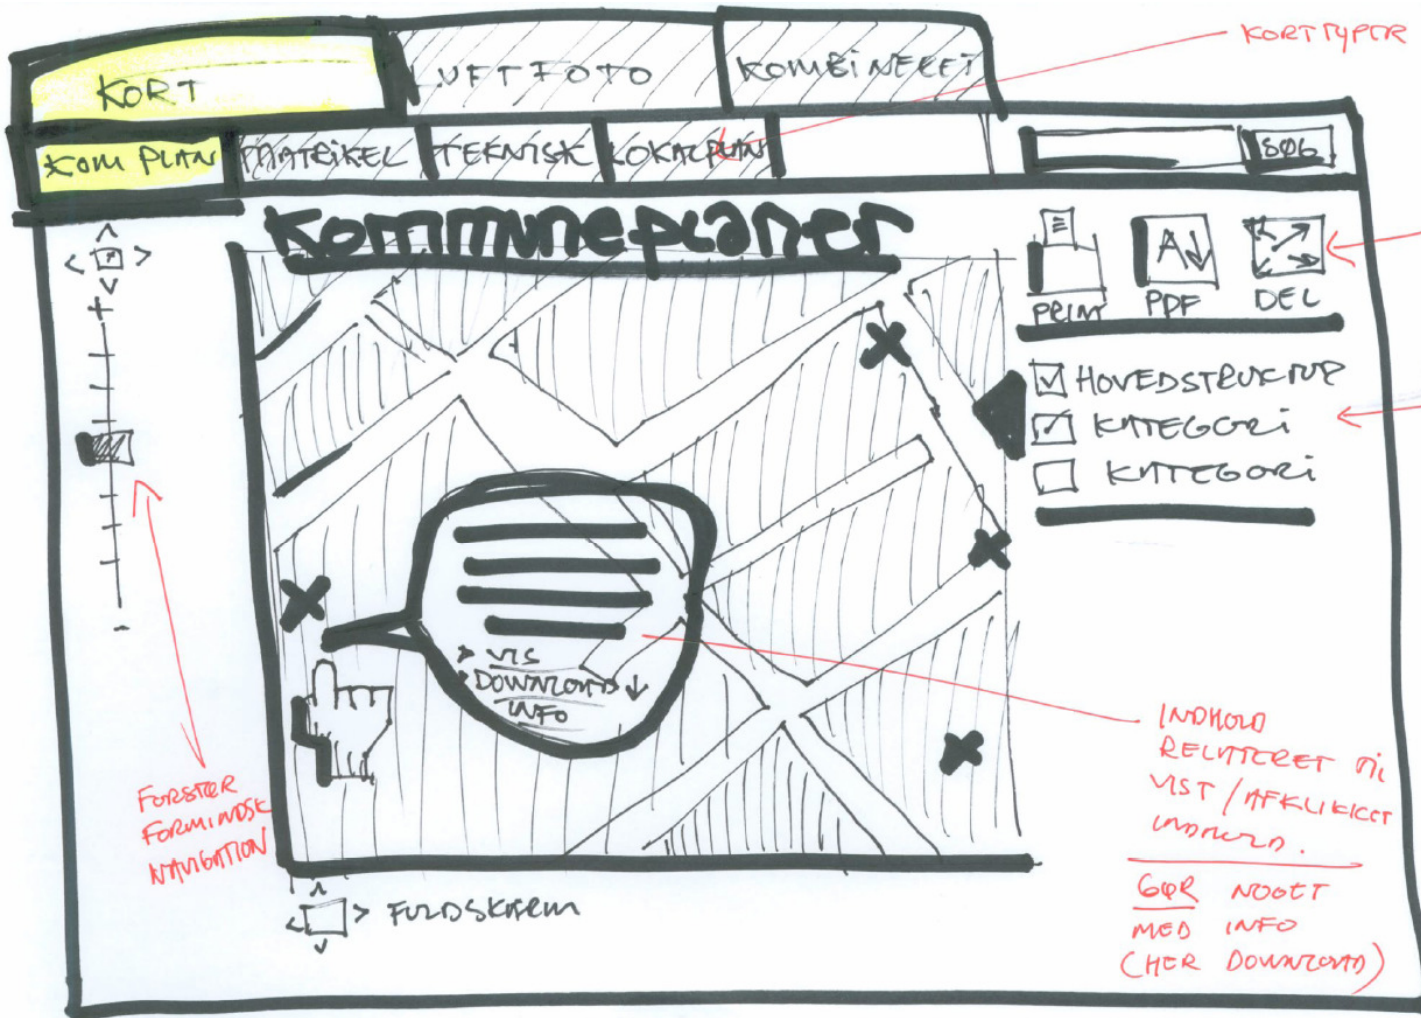 KORT TYPER
KORT
LUFTFOTO
KOMBINERET
KOM PLAN
MATRIKEL
TEKNISK
LOKALPLAN
SØG
Kommuneplaner
PRINT
PDF
DEL
HOVEDSTRUKTUR
KATEGORI
KATEGORI
> VIS
> DOWNLOAD ↓
INFO
FORSTØR
FORMINDSK
NAVIGATION
INDHOLD
RELATERET TIL
VIST / AFKLIKKET
INDHOLD.
GØR NOGET
MED INFO
(HER DOWNLOAD)
FULDSKÆRM